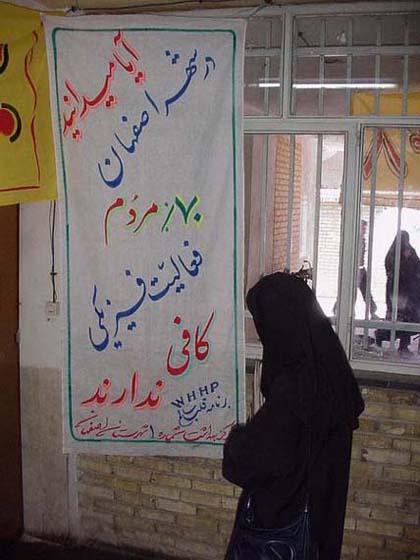 آیا میدانید
در شهر اصفهان
۷۰٪ مردم
فعالیت فیزیکی
کافی
ندارند
WHHP
برنامه قلب سالم
مرکز بهداشت شماره ۱ شهرستان اصفهان